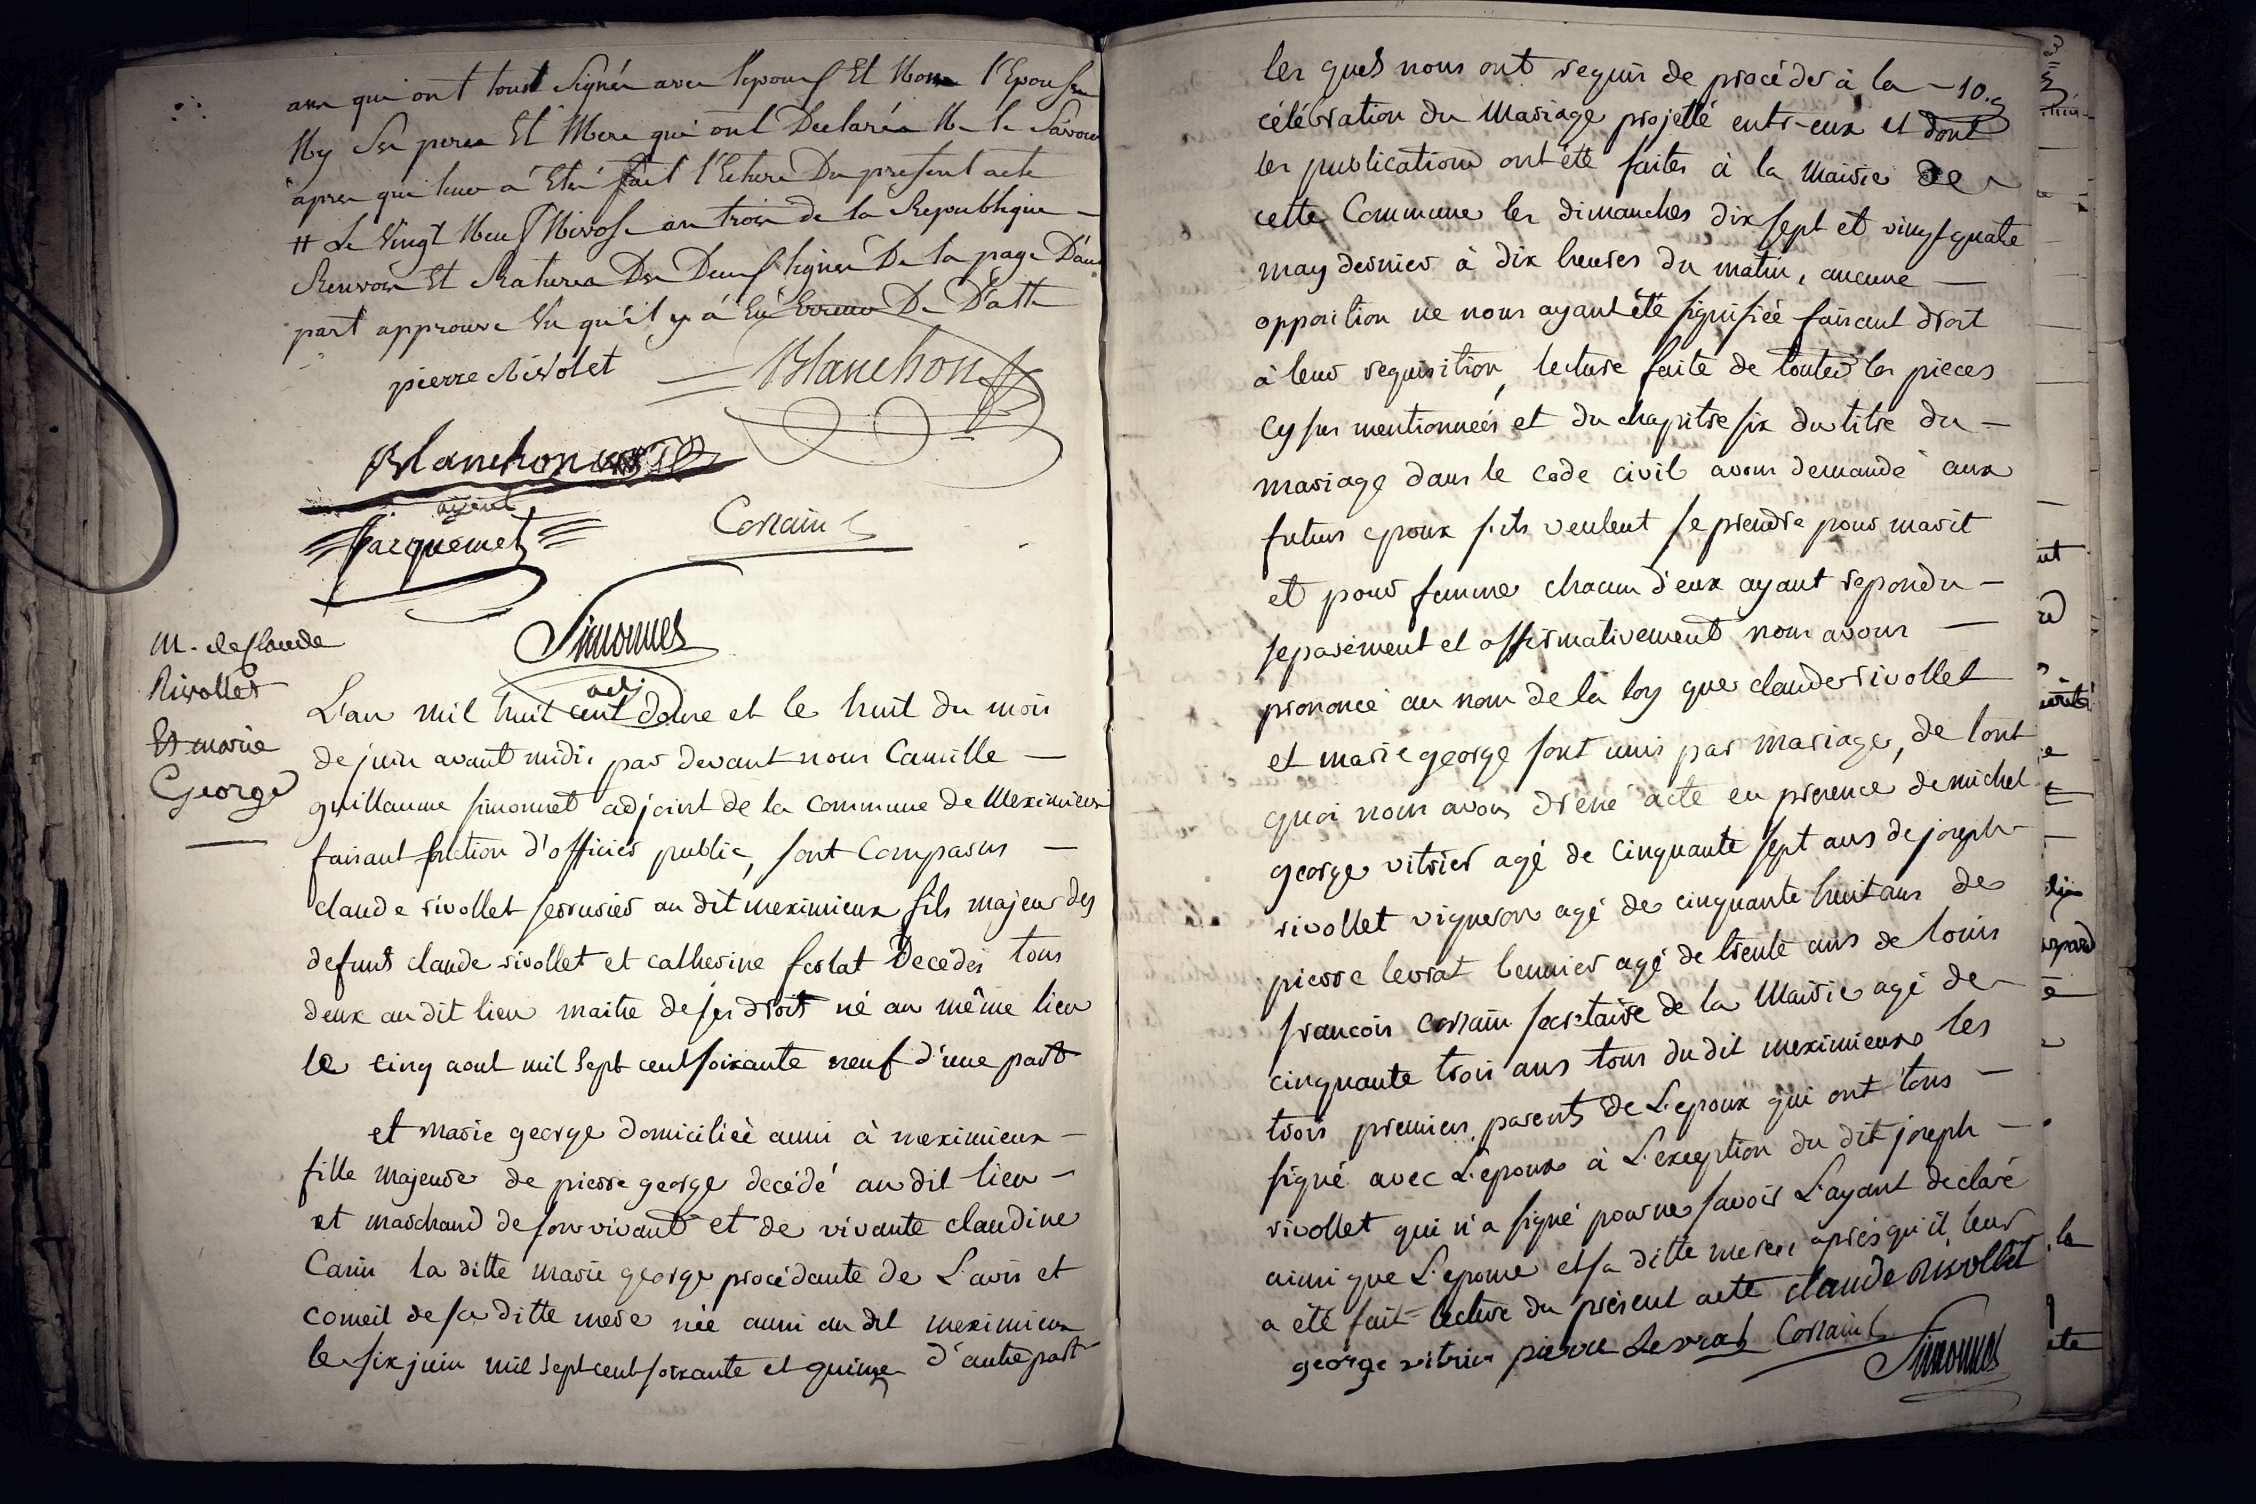 ans qui ont tous Signés avec l'epoux Et Non l'Epouse
Ny Ses peres Et Mere qui ont Declarés Ne le Sávoir
apres que leur a Eté fait l'Ecture Du present acte
# Le Vingt Neuf Nivose an trois de la Republique —
Renvois Et Ratures Des Deux lignes De la page D'autre
part approuvé Vu qu'il y á Eü Erreur De D'atte
pierre Rivolet
Blanchon
Blanchon
agent
Jacquemet
Corsain
Simonnet
adj.
M. de Claude
Rivollet
Et marie
George
L'an mil huit cent douze et le huit du mois
de juin avant midi, par devant nous Camille —
guillaume simonnet adjoint de la commune de Meximieux
faisant fonction d'officier public, sont Comparus —
claude rivollet serrurier au dit meximieux fils majeur des
defunts claude rivollet et catherine ferlat Decedés tous
deux au dit lieu maitre de ses droits né au même lieu
le cinq aout mil sept cent soixante neuf d'une part
et marie george domiciliée aussi à meximieux —
fille majeure de pierre george decédé au dit lieu —
et marchand de son vivant et de vivante claudine
Carin la ditte marie george procédante de L'avis et
conseil de sa ditte mere née aussi au dit meximieux
le six juin mil sept cent soixante et quinze d'autre part
les quels nous ont requis de procéder à la — 10.
célébration du Mariage projetté entr-eux et dont
les publications ont été faites à la Mairie de
cette Commune les dimanches dix sept et vingt quatre
may dernier à dix heures du matin, aucune —
opposition ne nous ayant été signifiée faisant droit
à leur requisition, lecture faite de toutes les pieces
cy sus mentionnées et du chapitre six du titre du —
mariage dans le code civil avons demandé aux
futurs epoux s'ils veulent se prendre pour marit
et pour femme chacun d'eux ayant repondu —
separément et affirmativement nous avons —
prononcé au nom de la loy que claude rivollet
et marie george sont unis par mariage, de tout
quoi nous avons dressé acte en presence de michel
george vitrier agé de cinquante sept ans de joseph
rivollet vigneron agé de cinquante huit ans de
pierre levrat lennier agé de trente ans de louis
francois corsain secretaire de la Mairie agé de —
cinquante trois ans tous du dit meximieux les
trois premiers parents de L'epoux qui ont tous —
signé avec L'epoux à L'exception du dit joseph —
rivollet qui n'a signé pour ne savoir L'ayant declaré
ainsi que L'epouse et sa ditte mere, après qu'il leur
a été fait lecture du présent acte claude Rivollet
george vitrier pierre Levrat Corsain
Simonnet